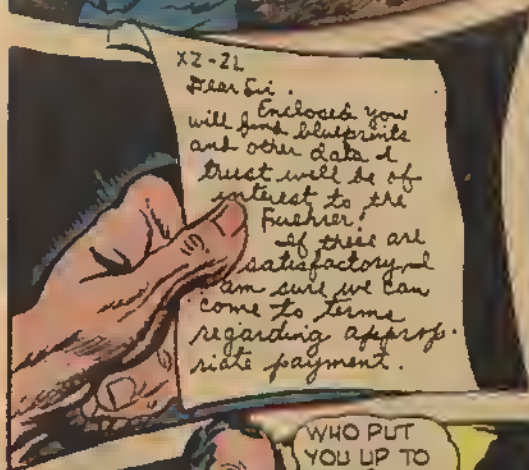 XZ-21
Dear Sir.
Enclosed you
will find blueprints
and other data I
trust will be of
interest to the
Fuehrer.
If these are
satisfactory, I
am sure we can
come to terms
regarding approp-
riate payment.
WHO PUT
YOU UP TO